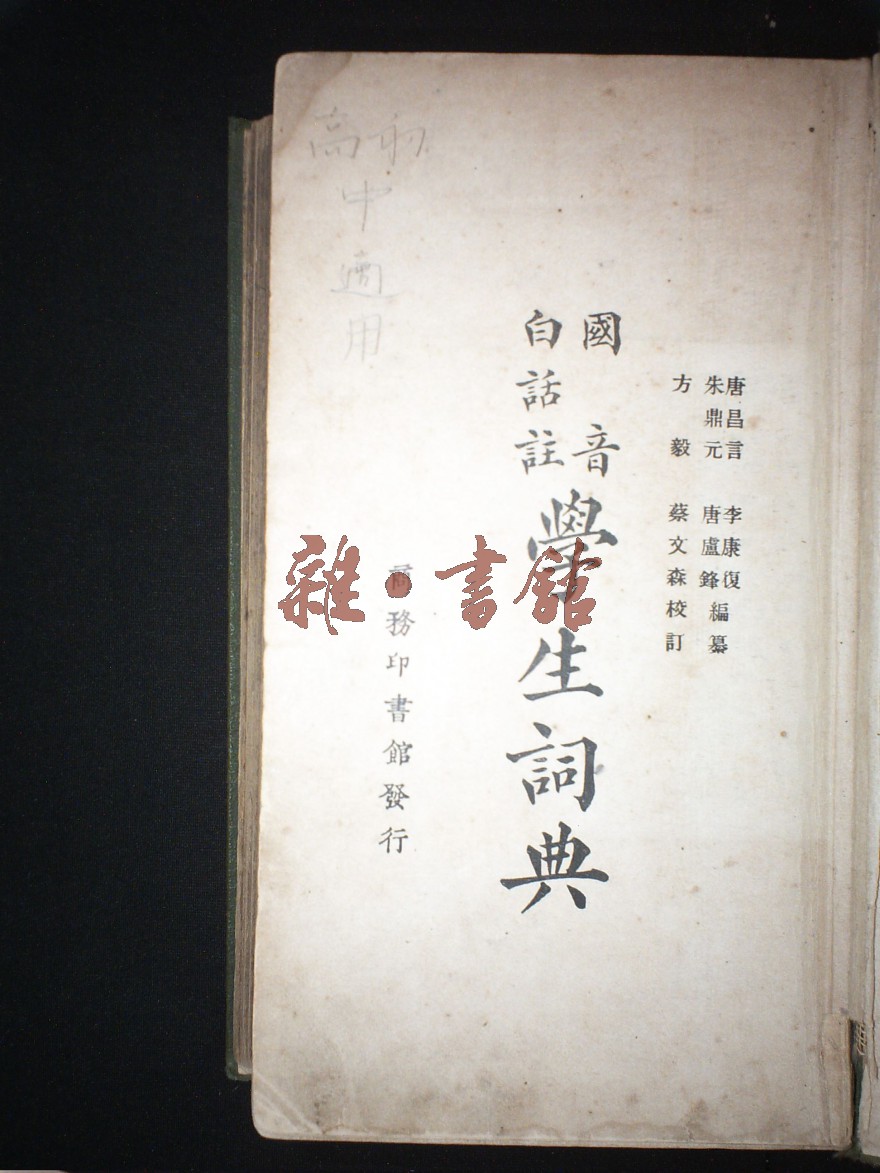 唐昌言 李康復
朱鼎元 唐盧鋒 編纂
方毅 蔡文森校訂
國音
白話註
學生詞典
商務印書館發行
高初
中適用
雜·書館